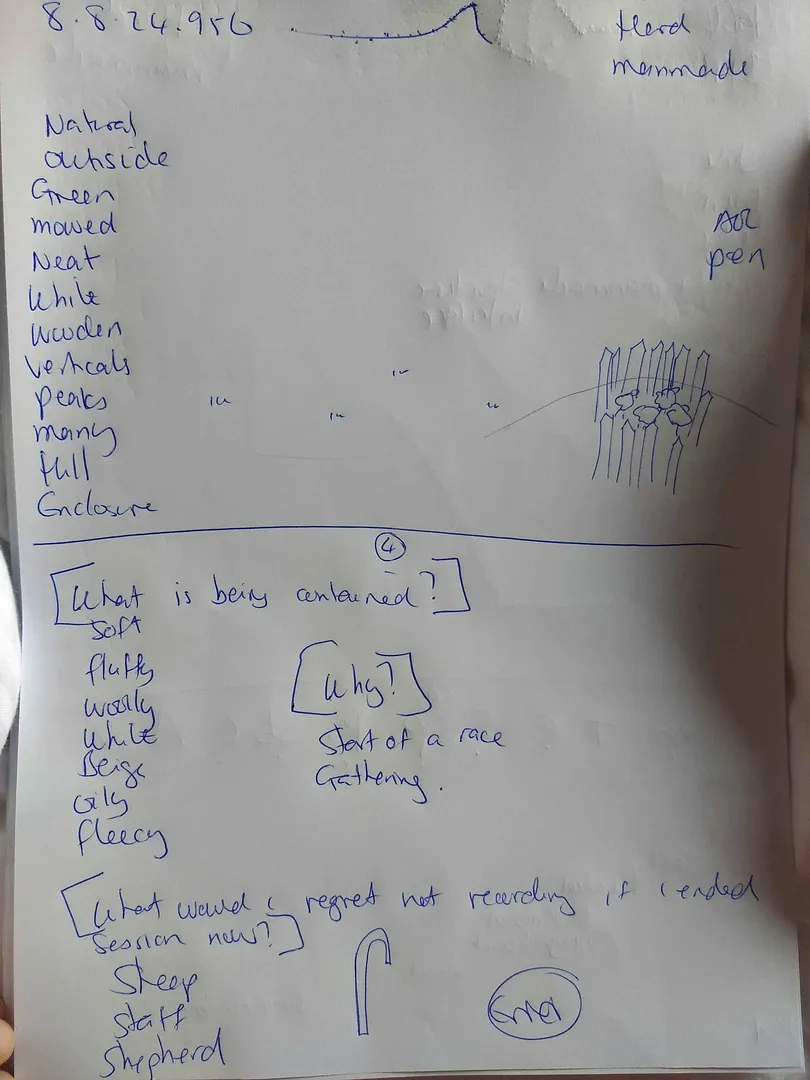 8.8.24.956
Hard
manmade
Natural
outside
Green
mowed
Neat
White
wooden
verticals
peaks
many
full
Enclosure
AOL
pen
④
[What is being contained?]
Soft
fluffy
woolly
white
Beige
oily
fleecy
[Why?]
Start of a race
Gathering.
[What would i regret not recording if i ended
session now?]
Sheep
staff
Shepherd